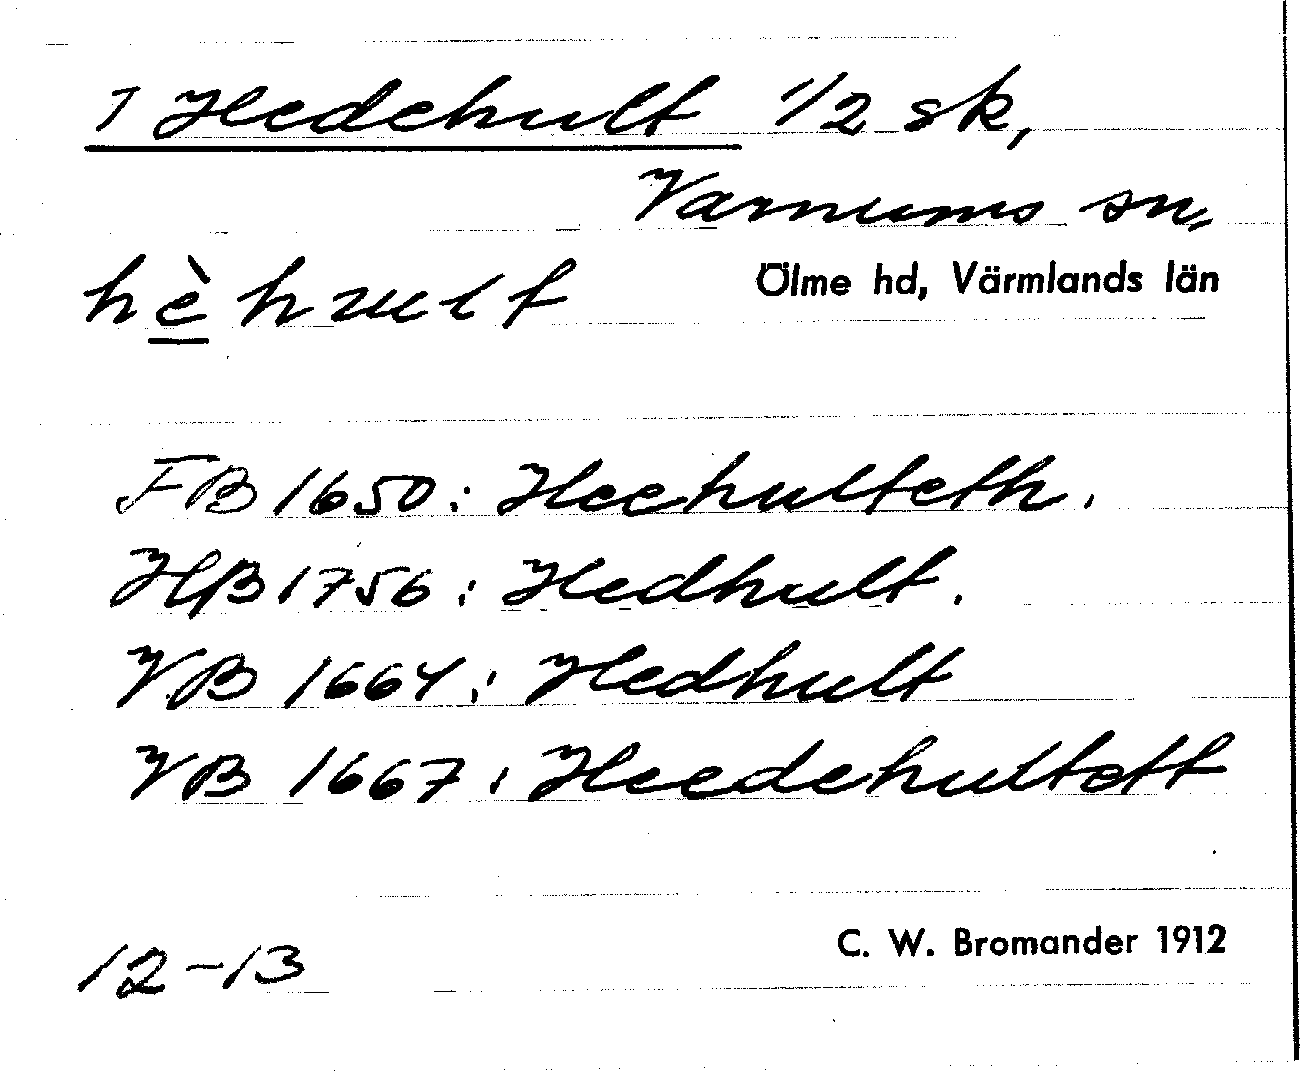 1 Hedehult 1/2 sk,
Varnums sn,
hèhult
Ölme hd, Värmlands län
FB 1650: Heehulteth.
HB 1756: Hedhult.
VB 1664: Hedhult
VB 1667: Heedehultett
12-13
C. W. Bromander 1912